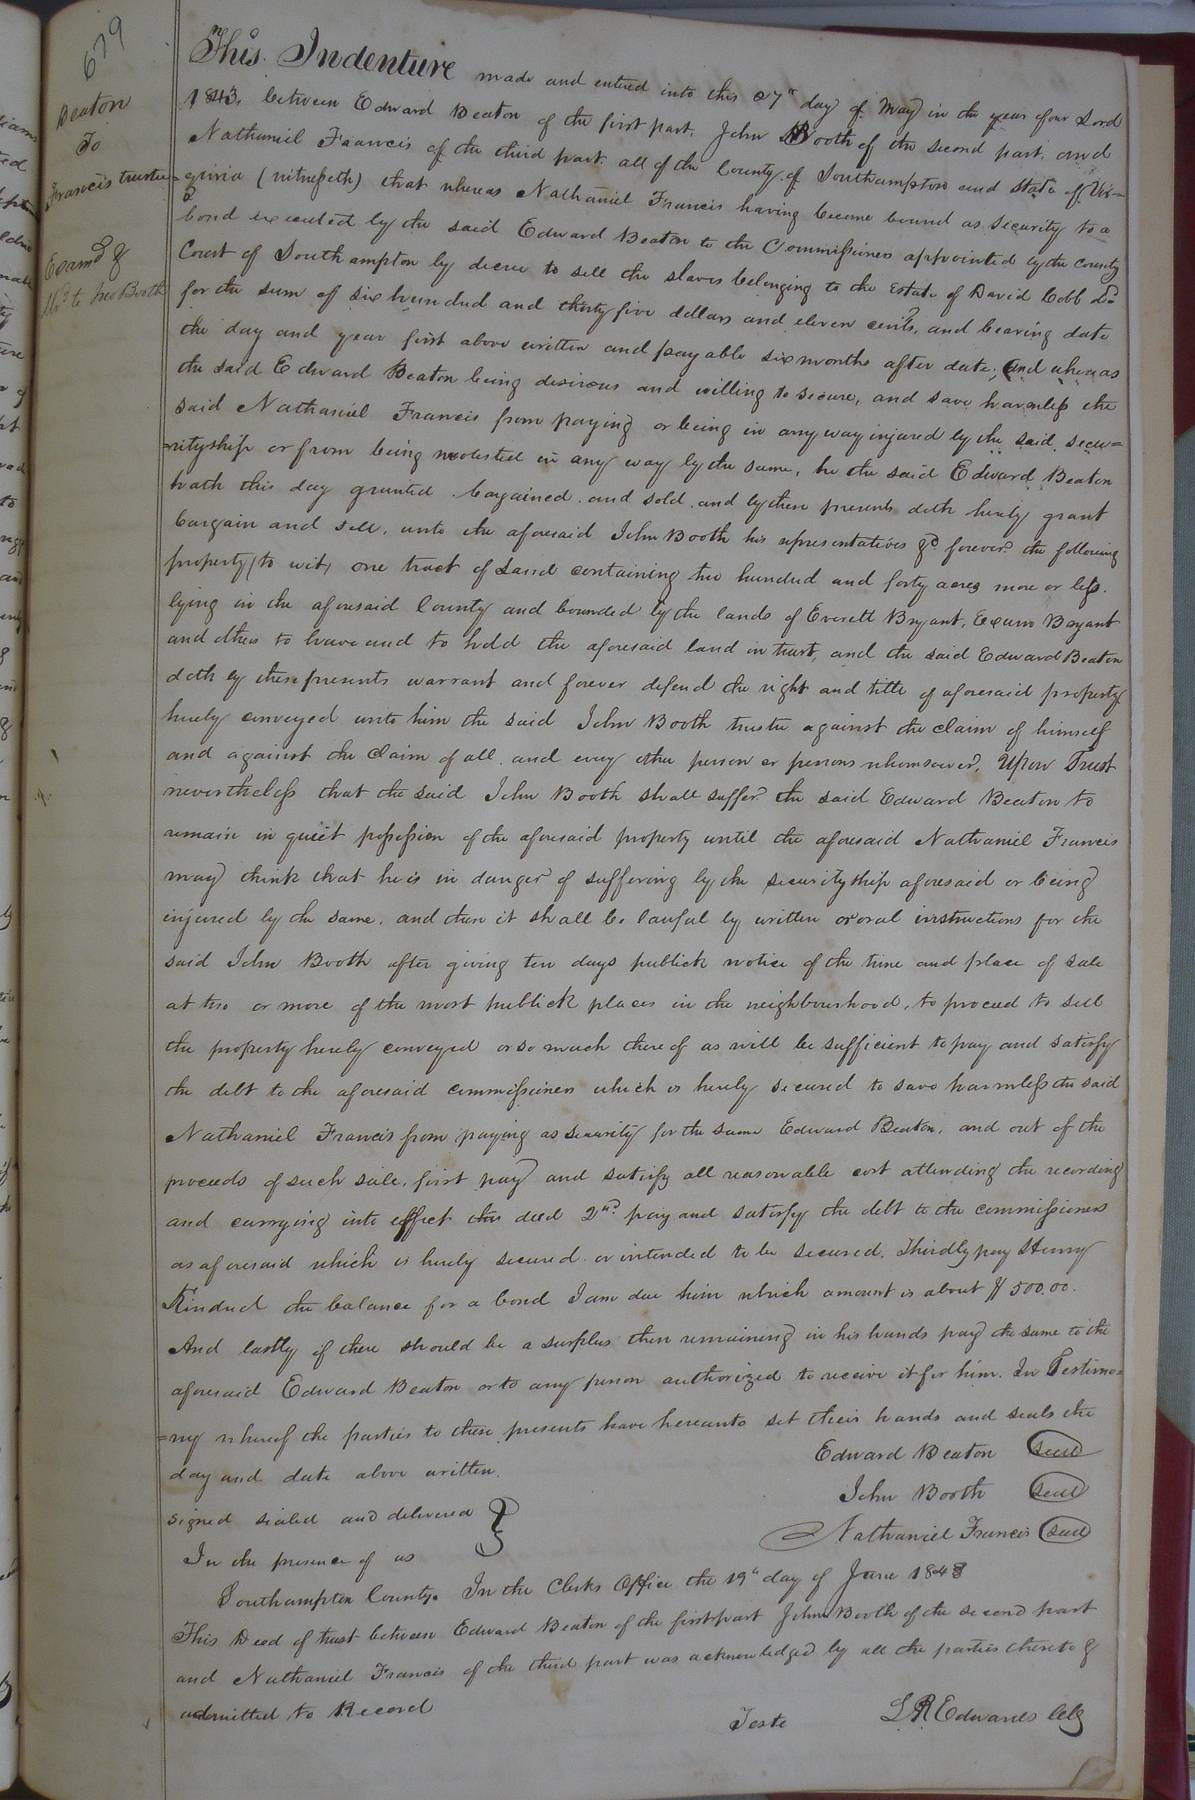 679
Beaton
To
Francis trustee
Examd &
to Jno Booth
This Indenture made and entered into this 27th day of May in the year of our Lord
1843, between Edward Beaton of the first part, John Booth of the second part, and
Nathaniel Francis of the third part all of the County of Southampton and State of Vir=
=ginia (witnesseth) that whereas Nathaniel Francis having become bound as Security to a
bond executed by the said Edward Beaton to the Commissioners appointed by the County
Court of Southampton by decree to sell the slaves belonging to the Estate of David Cobb decd
for the sum of six hundred and thirty five dollars and eleven cents, and bearing date
the day and year first above written and payable six months after date, and whereas
the said Edward Beaton being desirous and willing to secure, and save harmless the
said Nathaniel Francis from paying or being in any way injured by the said secu=
=rityship or from being molested in any way by the same, he the said Edward Beaton
hath this day granted bargained and sold and by these presents doth hereby grant
bargain and sell, unto the aforesaid John Booth his representatives &c forever the following
property (to wit) one tract of Land containing two hundred and forty acres more or less.
lying in the aforesaid County and bounded by the lands of Everett Bryant, Exum Bryant
and others to have and to hold the aforesaid land in trust, and the said Edward Beaton
doth by these presents warrant and forever defend the right and title of aforesaid property
hereby conveyed unto him the said John Booth trustee against the claim of himself
and against the claim of all and every other person or persons whomsoever, Upon Trust
nevertheless that the said John Booth shall suffer the said Edward Beaton to
remain in quiet possession of the aforesaid property until the aforesaid Nathaniel Francis
may think that he is in danger of suffering by the securityship aforesaid or being
injured by the same, and then it shall be lawful by written or oral instructions for the
said John Booth after giving ten days publick notice of the time and place of sale
at two or more of the most publick places in the neighbourhood, to proceed to sell
the property hereby conveyed or so much thereof as will be sufficient to pay and satisfy
the debt to the aforesaid commissioners which is hereby secured to save harmless the said
Nathaniel Francis from paying as security for the same Edward Beaton, and out of the
proceeds of such sale, first pay and satisfy all reasonable cost attending the recording
and carrying into effect this deed 2nd pay and satisfy the debt to the commissioners
as aforesaid which is hereby secured or intended to be secured, Thirdly pay Henry
Kindred the balance for a bond I am due him which amount is about $500.00.
And lastly if there should be a surplus then remaining in his hands pay the same to the
aforesaid Edward Beaton or to any person authorized to receive it for him. In Testimo=
=ny whereof the parties to these presents have hereunto set their hands and seals the
day and date above written.
Edward Beaton seal
John Booth seal
Nathaniel Francis seal
signed sealed and delivered
In the presence of us
Southampton County. In the Clerks Office the 19th day of June 1843
This Deed of trust between Edward Beaton of the first part John Booth of the second part
and Nathaniel Francis of the third part was acknowledged by all the parties thereto &
admitted to Record
Teste L R Edwards Clk